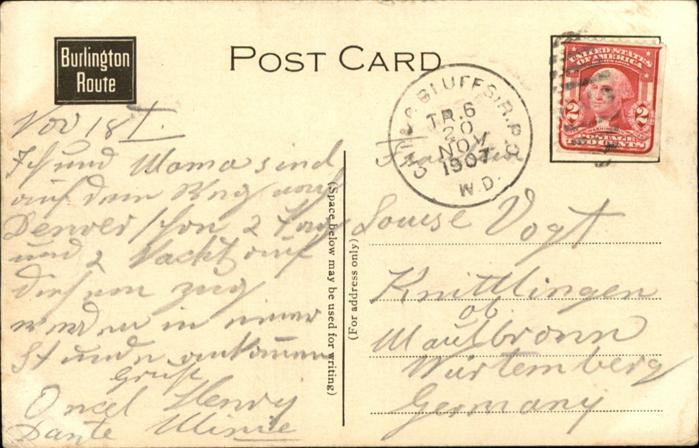 Burlington
Route
POST CARD
UNITED STATES
OF AMERICA
2 2
POSTAGE
TWO CENTS
BLUFFS R.P.O.
TR. 6
20
NOV
1907
W.D.
Nov 18
Ich und Mama sind
auf dem Weg nach
Denver schon 2 Tag
und 2 Nacht auf
diesem zug
werden in einer
Stunde ankommen
Gruß
Onkel Henry
Tante Minnie
(Space below may be used for writing)
(For address only)
Fraulein
Louise Vogt
Knittlingen
ob
Maulbronn
Würtemberg
Germany